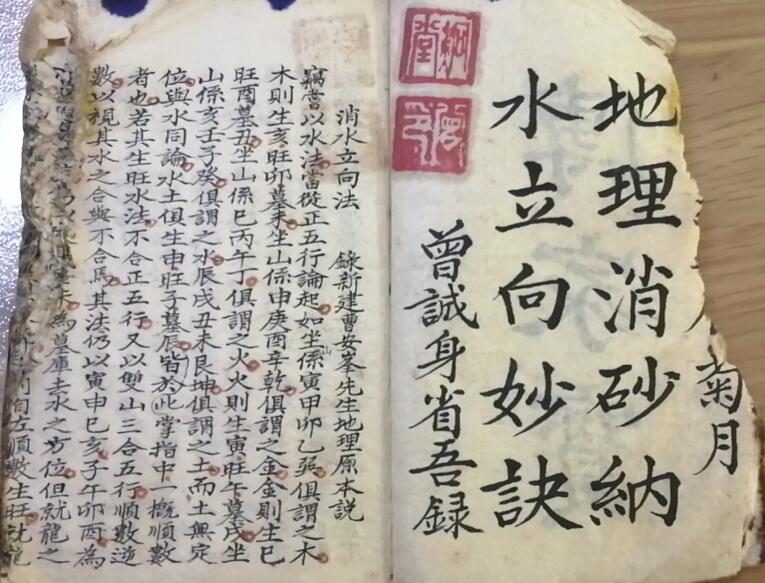 菊月
地理消砂納
水立向妙訣
曾誠身省吾錄
消水立向法 錄新建曹安峯先生地理原本說
竊嘗以水法當從正五行論起如坐山係寅甲卯乙巽俱謂之木
木則生亥旺卯墓未坐山係申庚酉辛乾俱謂之金金則生巳
旺酉墓丑坐山係巳丙午丁俱謂之火火則生寅旺午墓戌坐
山係亥壬子癸俱謂之水辰戌丑未艮坤俱謂之土而土無定
位與水同論水土俱生申旺子墓辰皆於此掌指中一概順數
者也若其生旺水法不合正五行又以雙山三合五行順數逆
數以視其水之合與不合焉其法仍以寅申巳亥子午卯酉為
為墓庫去水之方位但就龍之
自左順數生旺就龍